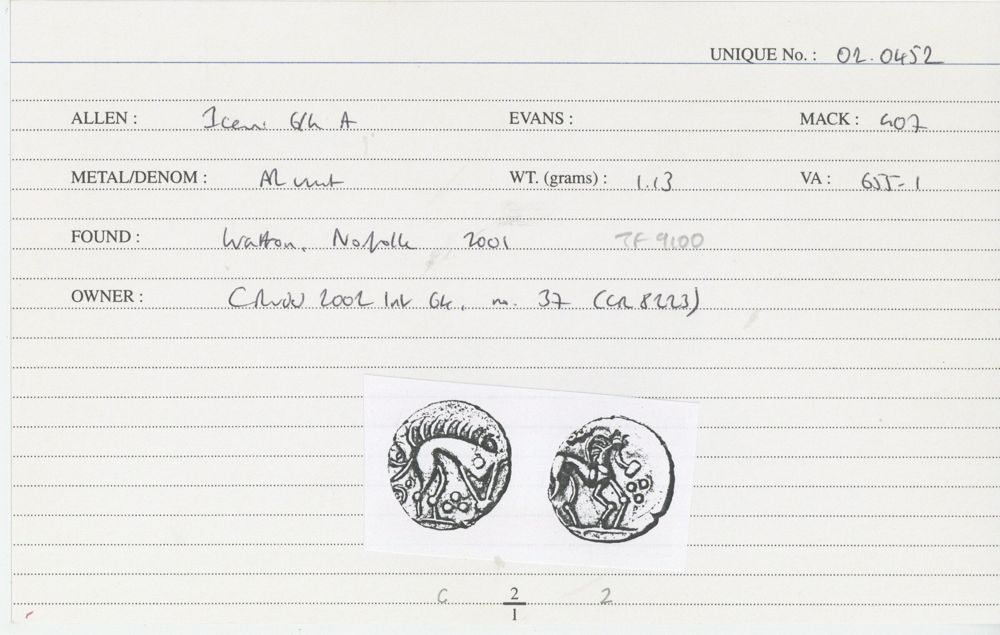 UNIQUE No. : 02.0452
ALLEN : Iceni Gk A EVANS : MACK : 407
METAL/DENOM : AR unit WT. (grams) : 1.13 VA : 655-1
FOUND : Watton, Norfolk 2001 TF 9100
OWNER : 2002 Gk, no. 37 (CR 8223)
C 2/1 2